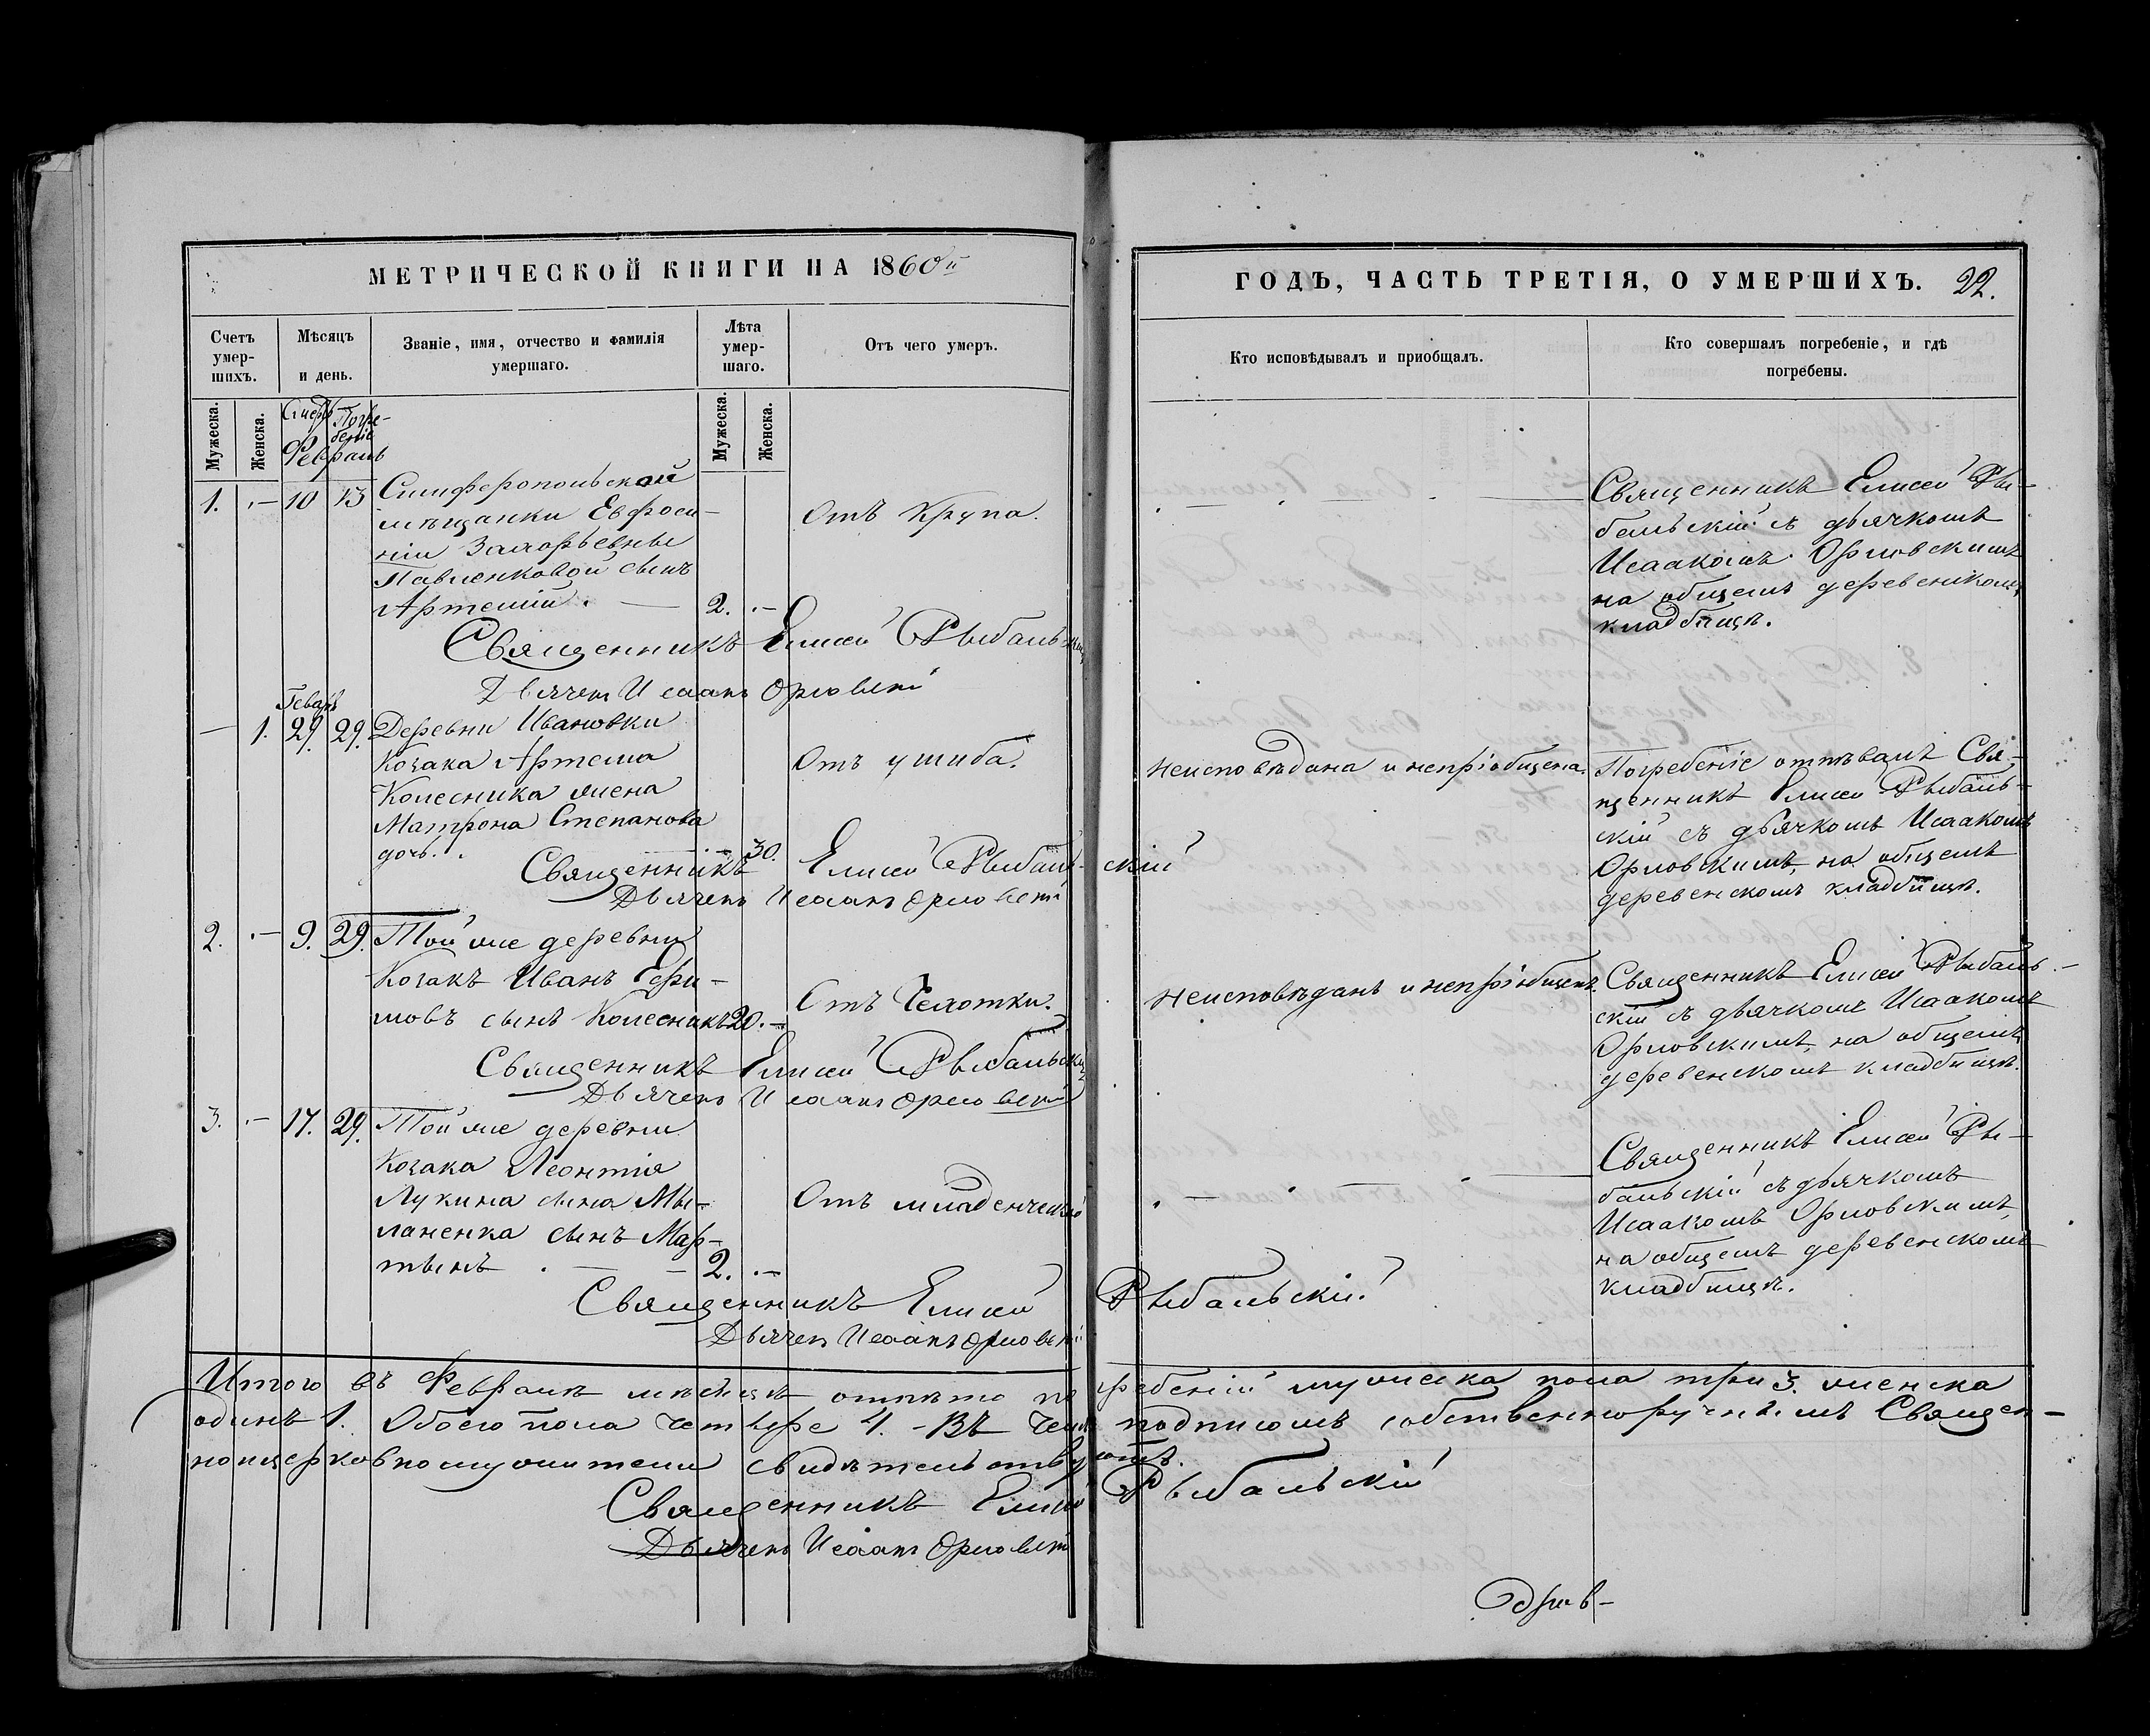 МЕТРИЧЕСКОЙ КНИГИ НА 1860й
Счетъ умер-шихъ.
Мѣсяцъ и день.
Званіе, имя, отчество и фамилія умершаго.
Лѣта умер-шаго.
Отъ чего умеръ.
Мужеска.
Женска.
Погре-
беніе
Февраль
Мужеска.
Женска.
1. — 10 13 Симферопольской
мѣщанки Евфроси-
ніи
Павленковой сынъ
Артемій. — 2. —
Отъ Крупа.
Священникъ Елисей Рыбальскій
Дьячекъ Исаакъ Орловскій
— 1. 29. 29. Деревни Ивановки
Козака Артема
Колесника жена
Матрона Степанова
дочь. 30.
Отъ ушиба.
Священникъ Елисей Рыбаль-скій
Дьячекъ Исаакъ Орловскій
2. — 9. 29. Той же деревни
Козакъ Иванъ Ефи-
мовъ сынъ Колесникъ 20. —
Отъ Чехотки.
Священникъ Елисей Рыбальскій
Дьячекъ Исаакъ Орловскій
3. — 17. 29. Той же деревни
Козака Леонтія
Лукина сына Мы-
ланенка сынъ Мар-
тынъ — 2. —
Отъ младенческой
Священникъ Елисей Рыбальскій
Дьячекъ Исаакъ Орловскій
Итого въ Февралѣ мѣсяцѣ отпѣто погребеній мужеска пола три 3. женска
одинъ 1. Обоего пола четыре 4. — Въ чемъ подписомъ собственноручнымъ Священ-
ноицерковнослужители свидѣтельствуютъ.
Священникъ Елисей Рыбальскій
Дьячекъ Исаакъ Орловскій
ГОДЪ, ЧАСТЬ ТРЕТІЯ, О УМЕРШИХЪ. 22.
Кто исповѣдывалъ и приобщалъ.
Кто совершалъ погребеніе, и гдѣ погребены.
Священникъ Елисей Ры-
бальскій съ дьячкомъ
Исаакомъ Орловскимъ
на общемъ деревенскомъ
кладбищѣ.
Неисповѣдана и непріобщена.
Погребеніе отпѣвалъ Свя-
щенникъ Елисей Рыбаль-
скій съ дьячкомъ Исаакомъ
Орловскимъ, на общемъ
деревенскомъ кладбищѣ.
Неисповѣданъ и непріобщенъ.
Священникъ Елисей Рыбаль-
скій съ дьячкомъ Исаакомъ
Орловскимъ, на общемъ
деревенскомъ кладбищѣ.
Священникъ Елисей Ры-
бальскій съ дьячкомъ
Исаакомъ Орловскимъ,
на общемъ деревенскомъ
кладбищѣ.